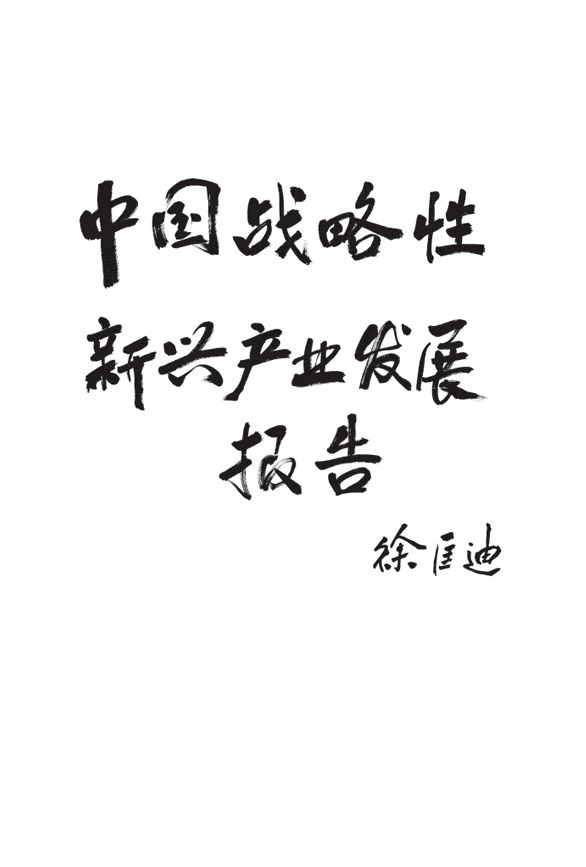 中国战略性
新兴产业发展
报告
徐匡迪